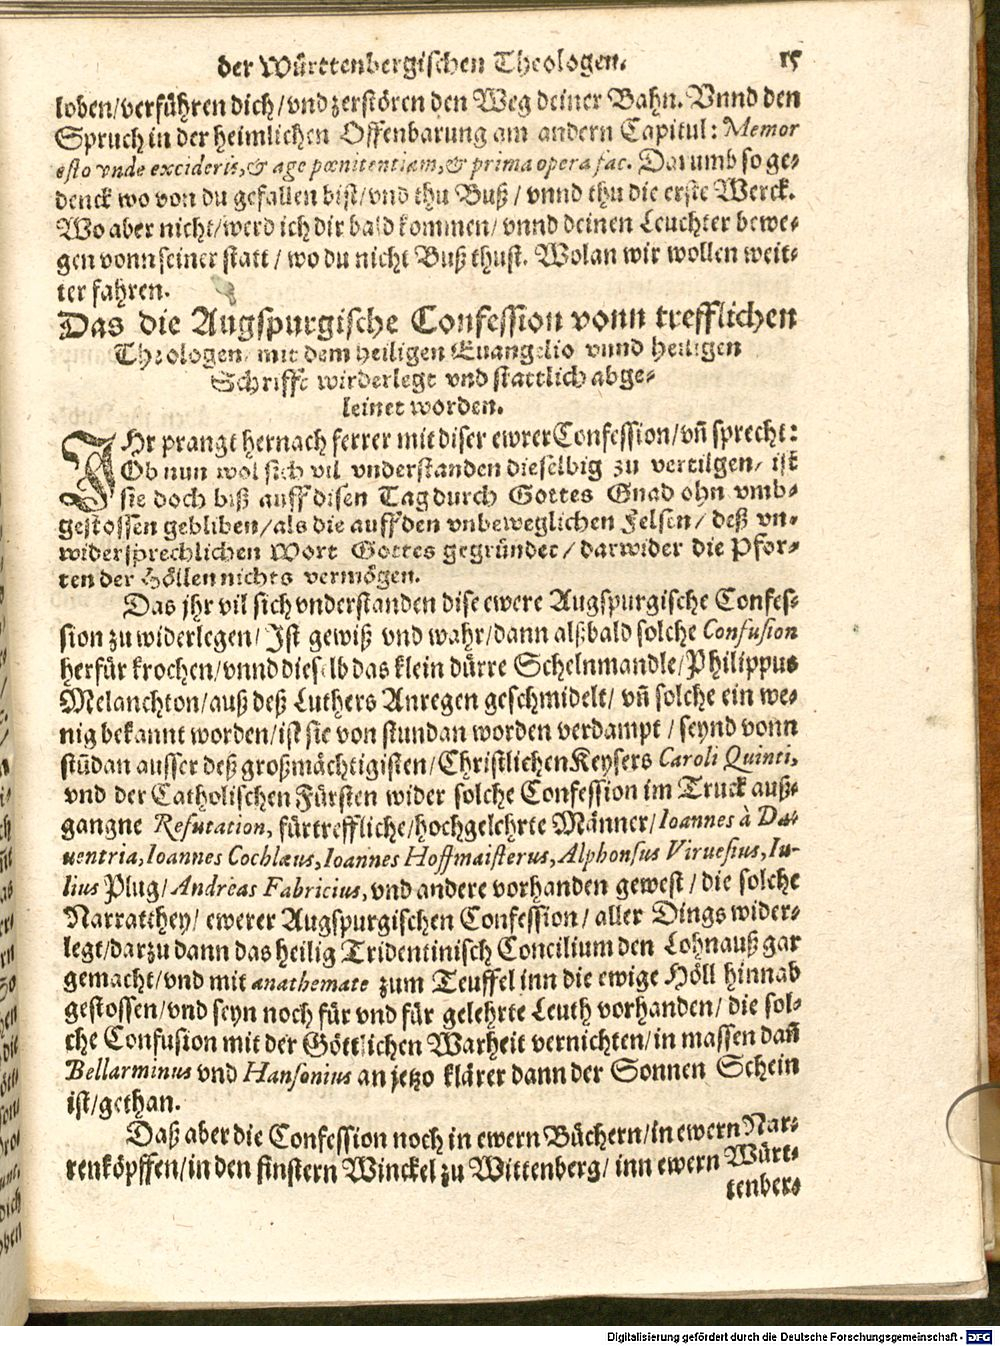 der Württenbergischen Theologen. 15
loben/verführen dich/vnd zerstören den Weg deiner Bahn. Vnnd den
Spruch in der heimlichen Offenbarung am andern Capitul: Memor
esto vnde excideris, & age pœnitentiam, & prima opera fac. Darumb so ge-
denck wo von du gefallen bist/vnd thu Buß / vnnd thu die erste Werck.
Wo aber nicht/werd ich dir bald kommen/ vnnd deinen Leuchter bewe-
gen vonn seiner statt / wo du nicht Buß thust. Wolan wir wollen weit-
ter fahren.
Das die Augspurgische Confession vonn trefflichen
Theologen/ mit dem heiligen Euangelio vnnd heiligen
Schrifft wirderlegt vnd stattlich abge-
leinet worden.
IHr prangt hernach ferrer mit diser ewrer Confession/vñ sprecht:
Ob nun wol sich vil vnderstanden dieselbig zu vertilgen/ ist
sie doch biß auff disen Tag durch Gottes Gnad ohn vmb-
gestossen gebliben/als die auff den vnbeweglichen Felsen/ deß vn-
widersprechlichen Wort Gottes gegründet/ darwider die Pfor-
ten der Höllen nichts vermögen.
Das jhr vil sich vnderstanden dise ewere Augspurgische Confes-
sion zu widerlegen/ Ist gewiß vnd wahr/dann alßbald solche Confusion
herfür krochen/vnnd dieselb das klein dürre Schelnmandle/Philippus
Melanchton/auß deß Luthers Anregen geschmidelt/ vñ solche ein we-
nig bekannt worden/ist sie von stundan worden verdampt / seynd vonn
stüdan ausser deß großmächtigisten/Christlichen Keysers Caroli Quinti,
vnd der Catholischen Fürsten wider solche Confession im Truck auß-
gangne Refutation, fürtreffliche/hochgelehrte Männer/Ioannes à Da-
uentria, Ioannes Cochlæus, Ioannes Hoffmaisterus, Alphonsus Viruesius, Iu-
lius Plug/ Andreas Fabricius, vnd andere vorhanden gewest / die solche
Narratthey/ ewerer Augspurgischen Confession/ aller Dings wider-
legt/darzu dann das heilig Tridentinisch Concilium den Lohn auß gar
gemacht/vnd mit anathemate zum Teuffel inn die ewige Höll hinnab
gestossen/vnd seyn noch für vnd für gelehrte Leuth vorhanden/ die sol-
che Confusion mit der Göttlichen Warheit vernichten/in massen dañ
Bellarminus vnd Hansonius an jetzo klärer dann der Sonnen Schein
ist/gethan.
Daß aber die Confession noch in ewern Büchern/in ewern Nar-
renköpffen/in den finstern Winckel zu Wittenberg/ inn ewern Würt-
tenber-
Digitalisierung gefördert durch die Deutsche Forschungsgemeinschaft - DFG